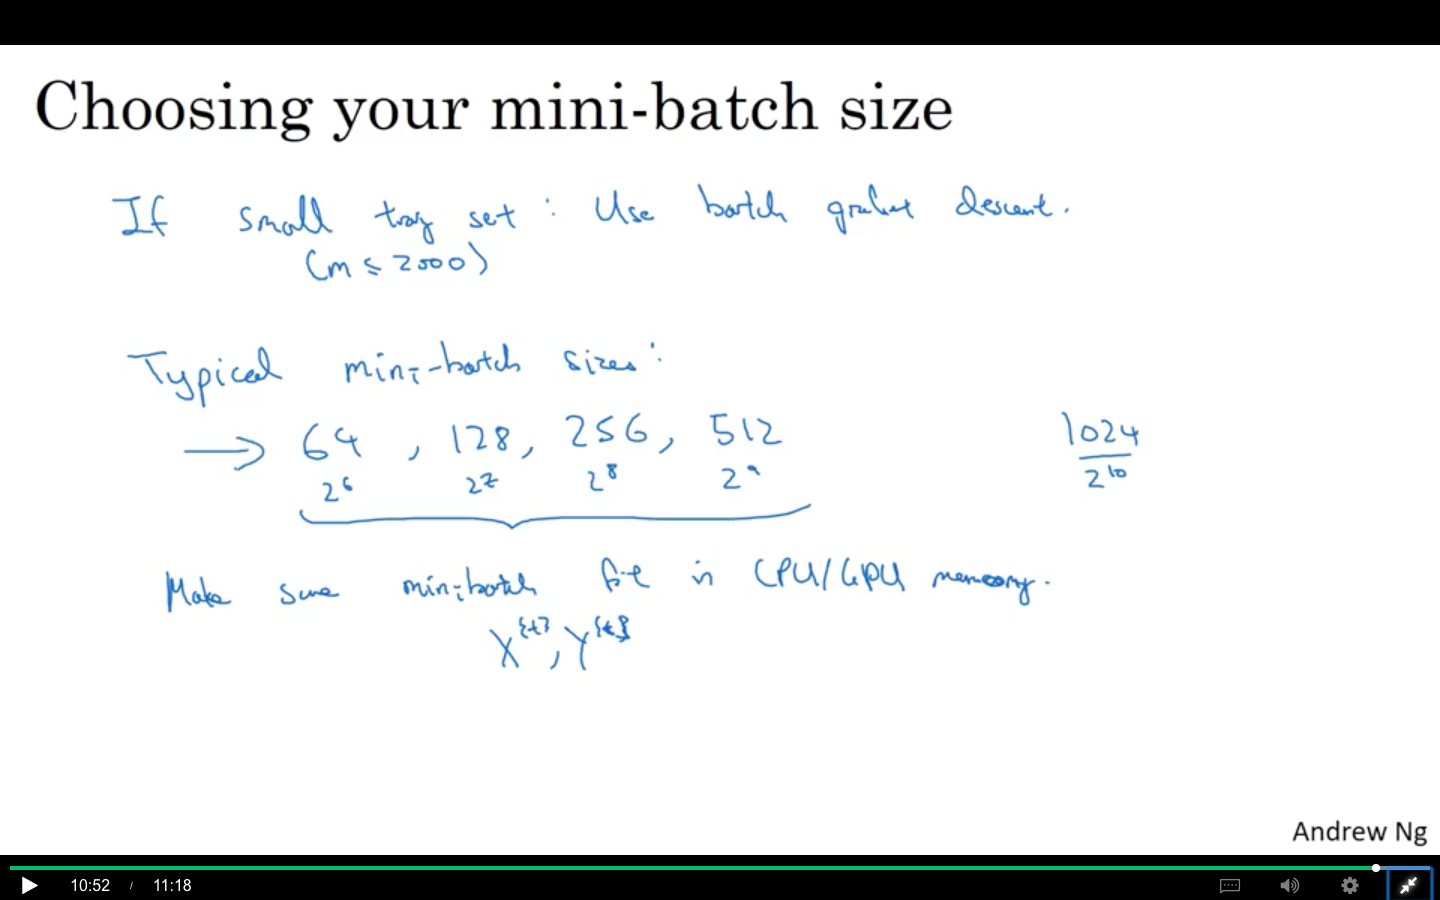 Choosing your mini-batch size
If small trag set : Use batch gradient descent.
(m ≤ 2000)
Typical mini-batch sizes:
→ 64 , 128, 256, 512 1024
2^6 2^7 2^8 2^9 2^10
Make sure minibatch fit in CPU/GPU memory.
X^{t}, Y^{t}
Andrew Ng
10:52 / 11:18